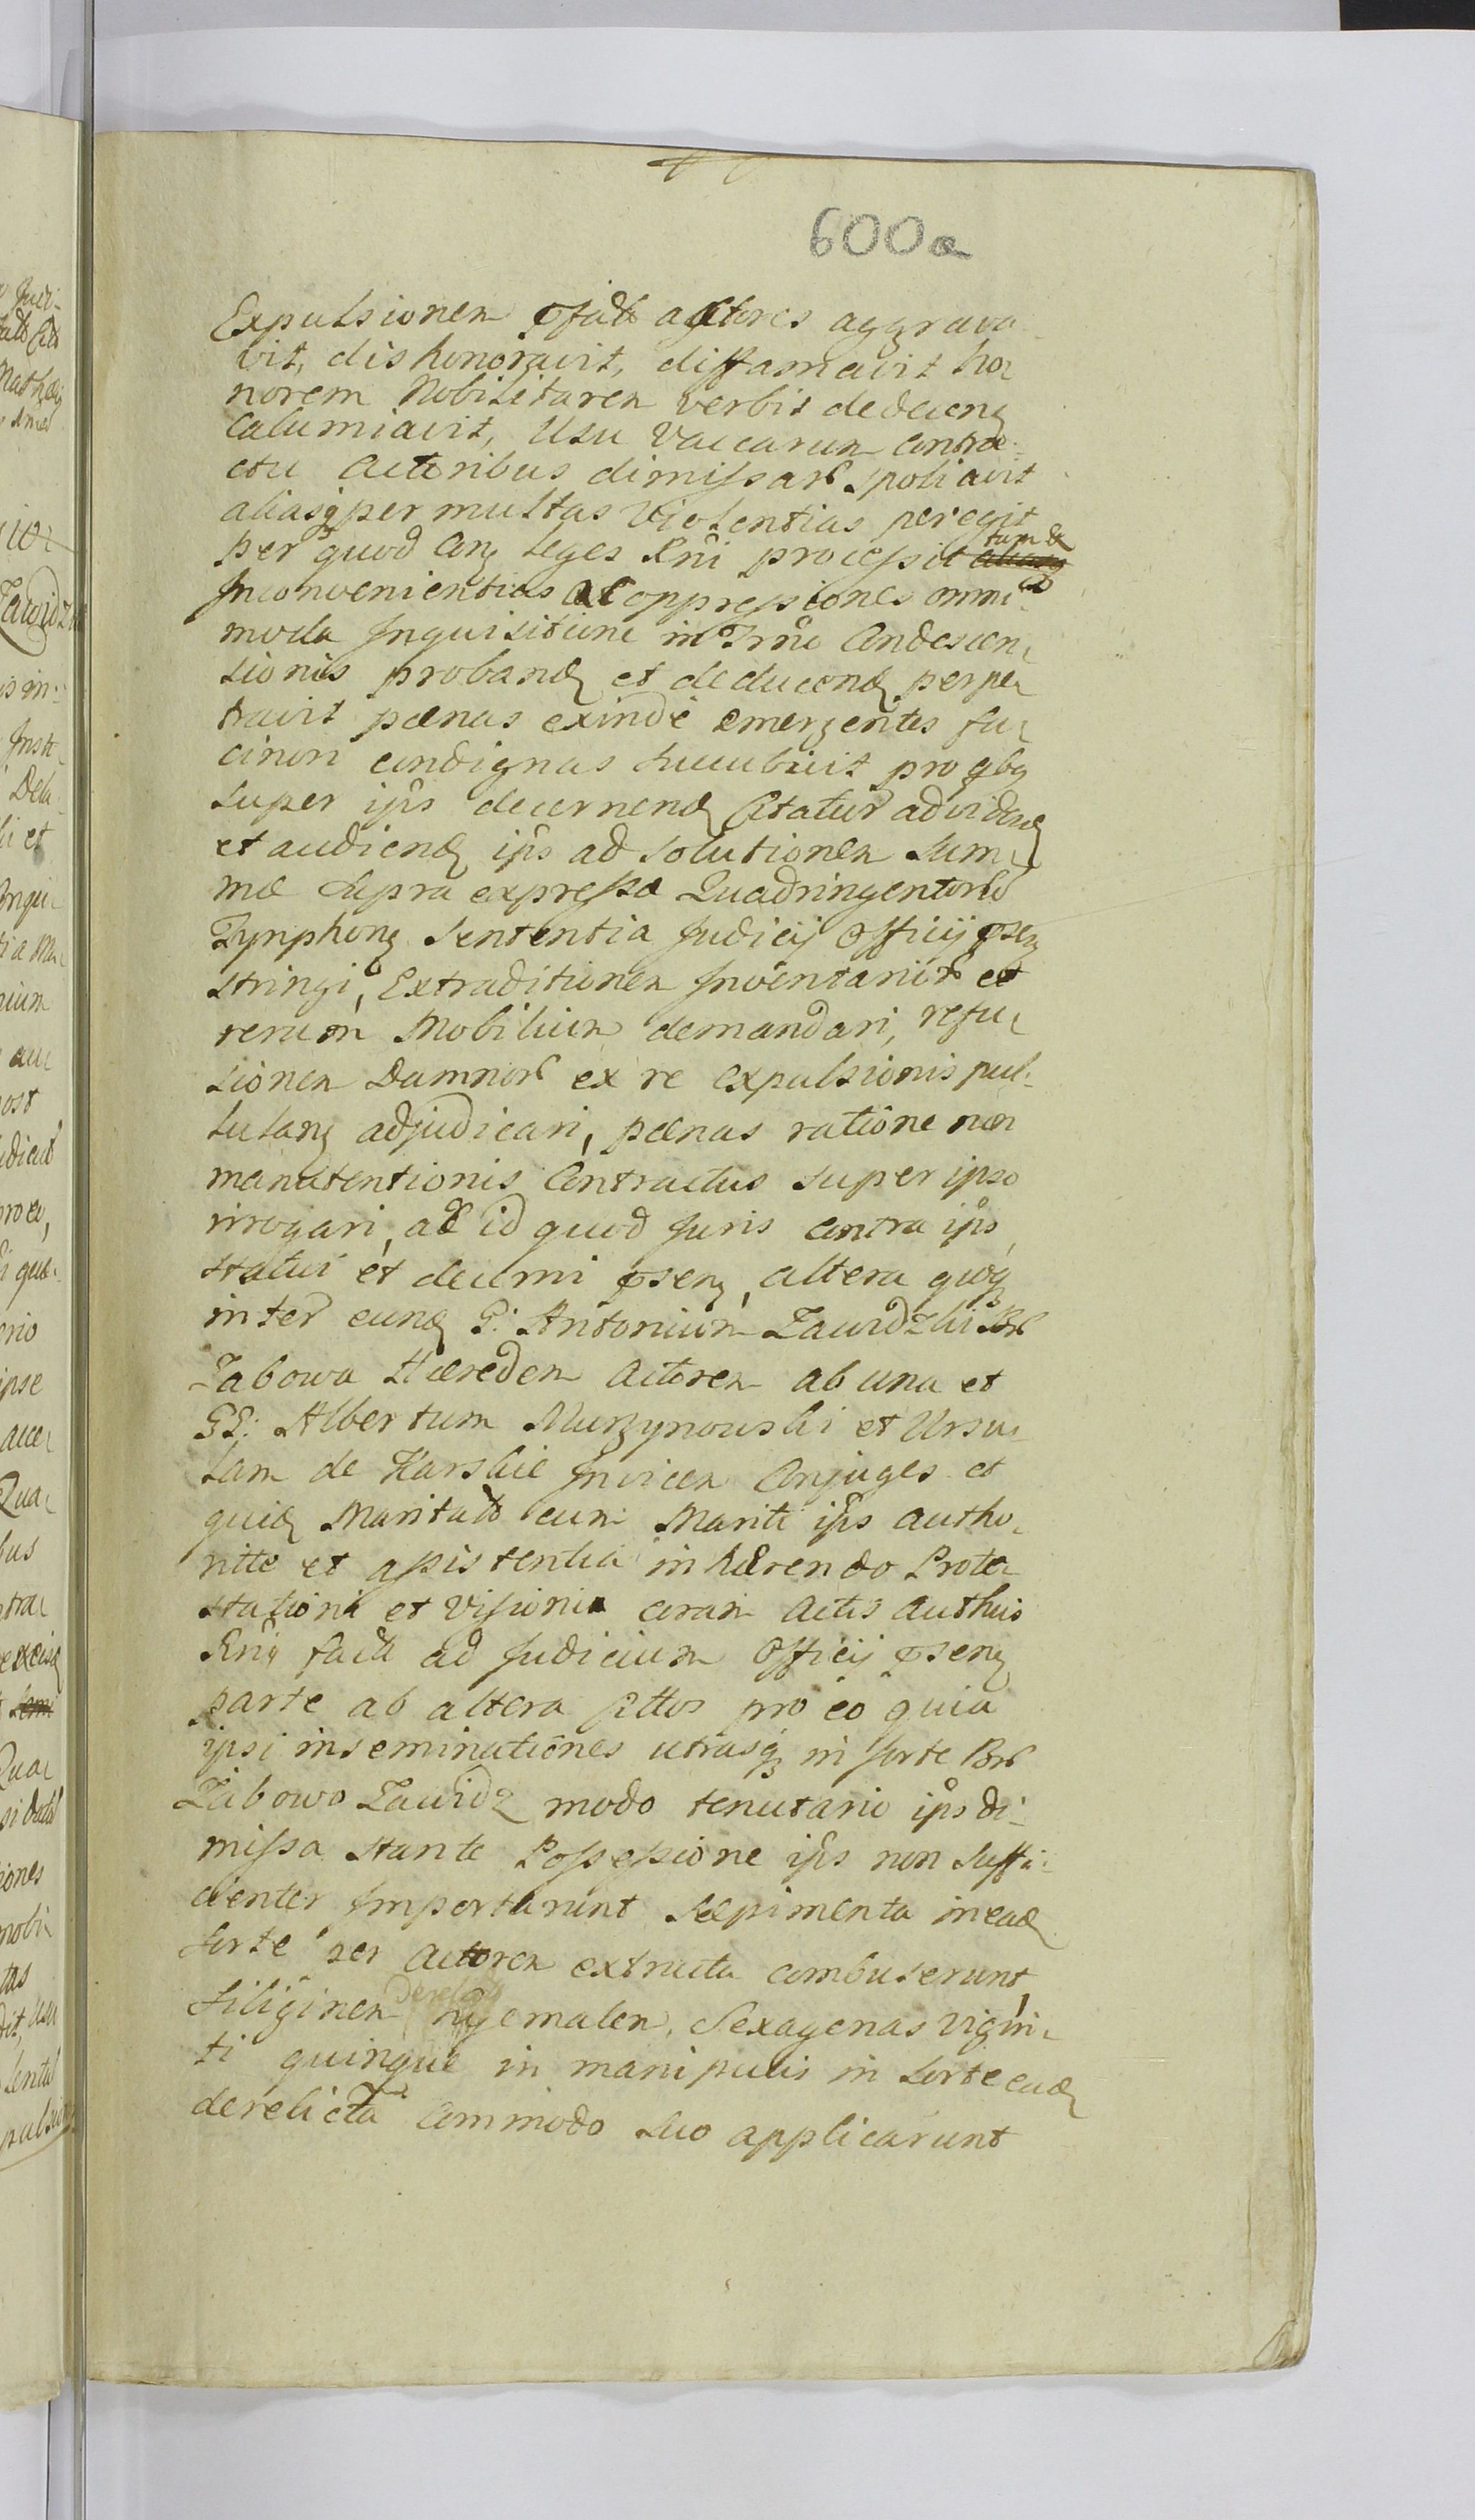 600a
Expulsionem pfatt actores aggrava
vit, dishonoravit, diffamavit ho
norem Nobilitarem verbis dedecen
Calumiavit, Usu Vaccarum contra
ctu Actoribus dimissar spoliavit
aliasq permultas Violentias peregit
per quod con leges Rni processit tum &
Inconvenientias ac oppressiones omni
moda Inquisitione in Trno Condescen
sionis proband et deducend perpe
travit paenas exinde emergentes fa
cinori condignas succubuit pro qbs
super ips decernend Citatur ad vidend
et audiend ips ad solutionem Sum
mae supra expressae Quadringentor
Tynphon Sententia Judicij Officij psen
stringi, Extraditionem Inventarior et
rerum Mobilium demandari, refu
sionem Damnor ex re expulsionis pul
lulan adjudicari, paenas ratione non
manutentionis Contractus super ipso
irrogari, ac id quod Juris contra ips
statui et decerni psen, altera quoq
inter eund G. Antonium Zawidzki Bor
Zabowa Haeredem Actorem ab una et
GG: Albertum Murzynowski et Ursu
lam de Karskie Invicem Conjuges et
quid Maritat cum Mariti ips autho
ritte et assistentia inhaerendo Prote
stationi et Visioni coram Actis authuis
Rnij fact ad Judicium Officij psen
parte ab altera Cittos pro eo quia
ipsi inseminationes utrasq in sorte Bor
Zabowo Zawidz modo tenutario ips di
missa stante Possessione ips non suffi
cienter Importarunt Saepimenta in ead
sorte per Actorem extructa combuserunt,
Siliginem hyemalem, Sexagenas vigin
ti quinque in manipulis in sorte ead
derelicta Commodo suo applicarunt